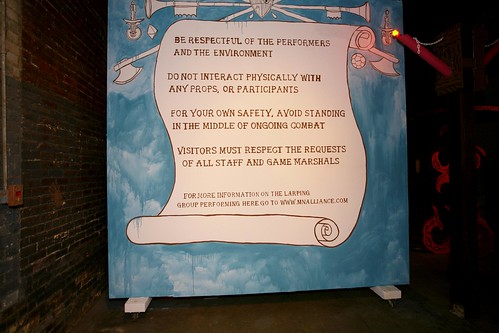 BE RESPECTFUL OF THE PERFORMERS
AND THE ENVIRONMENT
DO NOT INTERACT PHYSICALLY WITH
ANY PROPS, OR PARTICIPANTS
FOR YOUR OWN SAFETY, AVOID STANDING
IN THE MIDDLE OF ONGOING COMBAT
VISITORS MUST RESPECT THE REQUESTS
OF ALL STAFF AND GAME MARSHALS
FOR MORE INFORMATION ON THE LARPING
GROUP PERFORMING HERE GO TO WWW.MNALLIANCE.COM